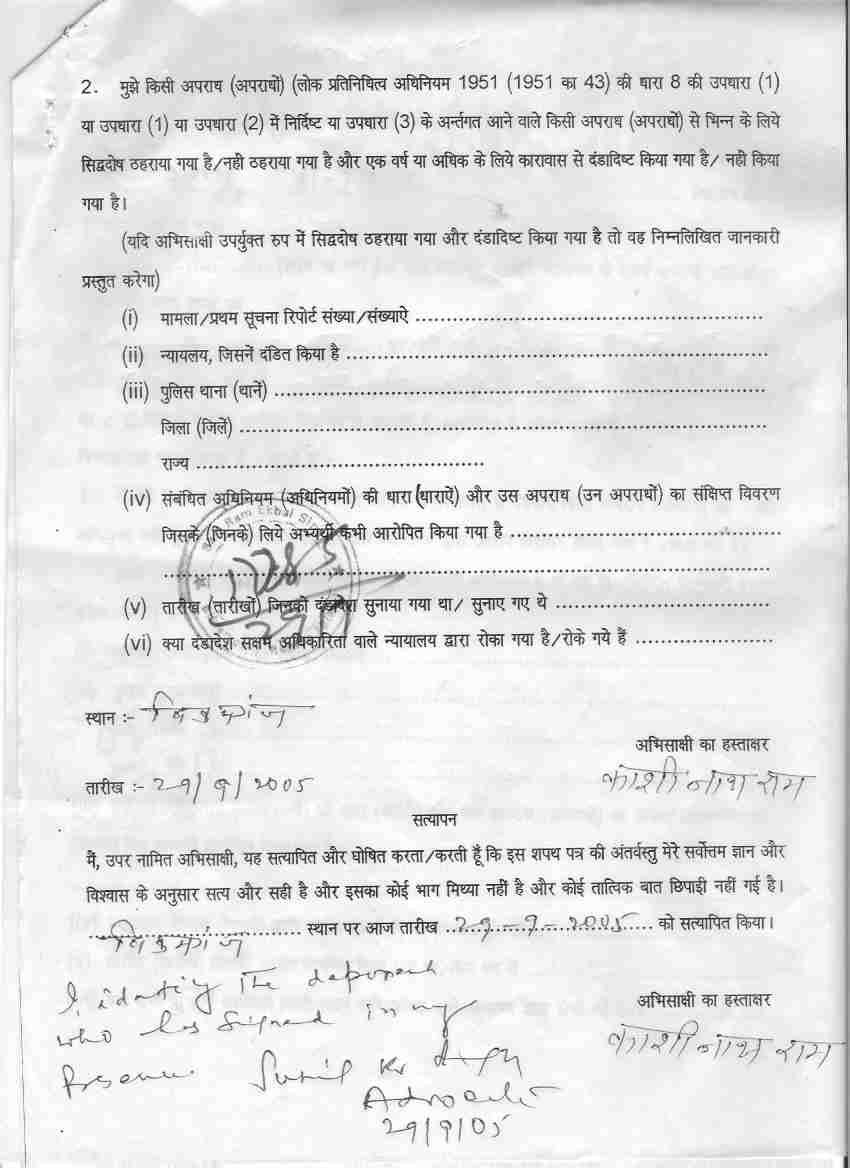 2. मुझे किसी अपराध (अपराधों) (लोक प्रतिनिधित्व अधिनियम 1951 (1951 का 43) की धारा 8 की उपधारा (1)
या उपधारा (1) या उपधारा (2) में निर्दिष्ट या उपधारा (3) के अर्न्तगत आने वाले किसी अपराध (अपराधों) से भिन्न के लिये
सिद्वदोष ठहराया गया है/नही ठहराया गया है और एक वर्ष या अधिक के लिये कारावास से दंडादिष्ट किया गया है/ नही किया
गया है।
(यदि अभिसाक्षी उपर्युक्त रुप में सिद्वदोष ठहराया गया और दंडादिष्ट किया गया है तो वह निम्नलिखित जानकारी
प्रस्तुत करेगा)
(i) मामला/प्रथम सूचना रिपोर्ट संख्या/संख्याऐ ........................................................
(ii) न्यायलय, जिसनें दंडित किया है ........................................................
(iii) पुलिस थाना (थानें) ........................................................
जिला (जिलें) ........................................................
राज्य ........................................................
(iv) संबंधित अधिनियम (अधिनियमों) की धारा (धाराऐं) और उस अपराध (उन अपराधों) का संक्षिप्त विवरण
जिसके (जिनके) लिये अभ्यर्थी कभी आरोपित किया गया है ........................................
........................................................
(v) तारीख (तारीखों) जिनको दंडादेश सुनाया गया था/ सुनाए गए थे ........................................
(vi) क्या दंडादेश सक्षम अधिकारिता वाले न्यायालय द्वारा रोका गया है/रोके गये हैं ....................
Ram Ekbal
स्थान :- बिक्रमगंज
अभिसाक्षी का हस्ताक्षर
तारीख :- 29/9/2005
काशी नाथ राम
सत्यापन
मैं, उपर नामित अभिसाक्षी, यह सत्यापित और घोषित करता/करती हूँ कि इस शपथ पत्र की अंतर्वस्तु मेरे सर्वोत्तम ज्ञान और
विश्वास के अनुसार सत्य और सही है और इसका कोई भाग मिथ्या नहीं है और कोई तात्विक बात छिपाई नहीं गई है।
बिक्रमगंज स्थान पर आज तारीख 29-9-2005 को सत्यापित किया।
I identify the deponent
who has signed in my
अभिसाक्षी का हस्ताक्षर
Presence. Sunil Kr
काशी नाथ राम
Advocate
29/9/05